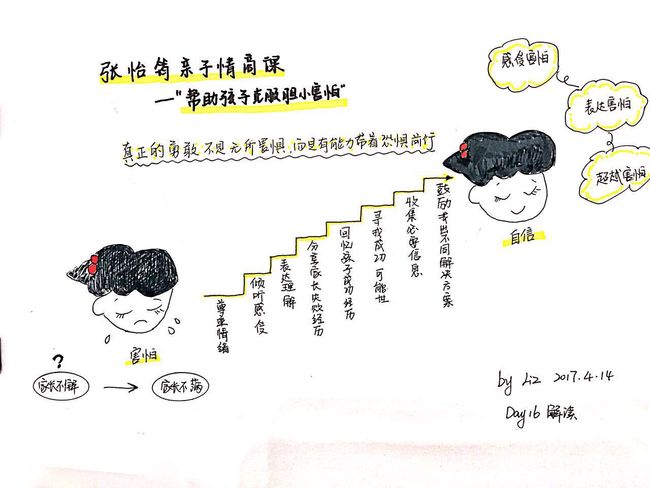 张怡筠亲子情商课
—"帮助孩子克服胆小害怕"
真正的勇敢,不是无所畏惧,而是有能力带着恐惧前行
感受害怕
表达害怕
超越害怕
自信
尊重情绪
倾听感受
表达理解
分享家长失败经历
回忆孩子成功经历
寻找成功可能性
收集必要信息
鼓励找出不同解决方案
害怕
?
家长不解
→
家长不满
by Liz 2017.4.14
Day16 解读